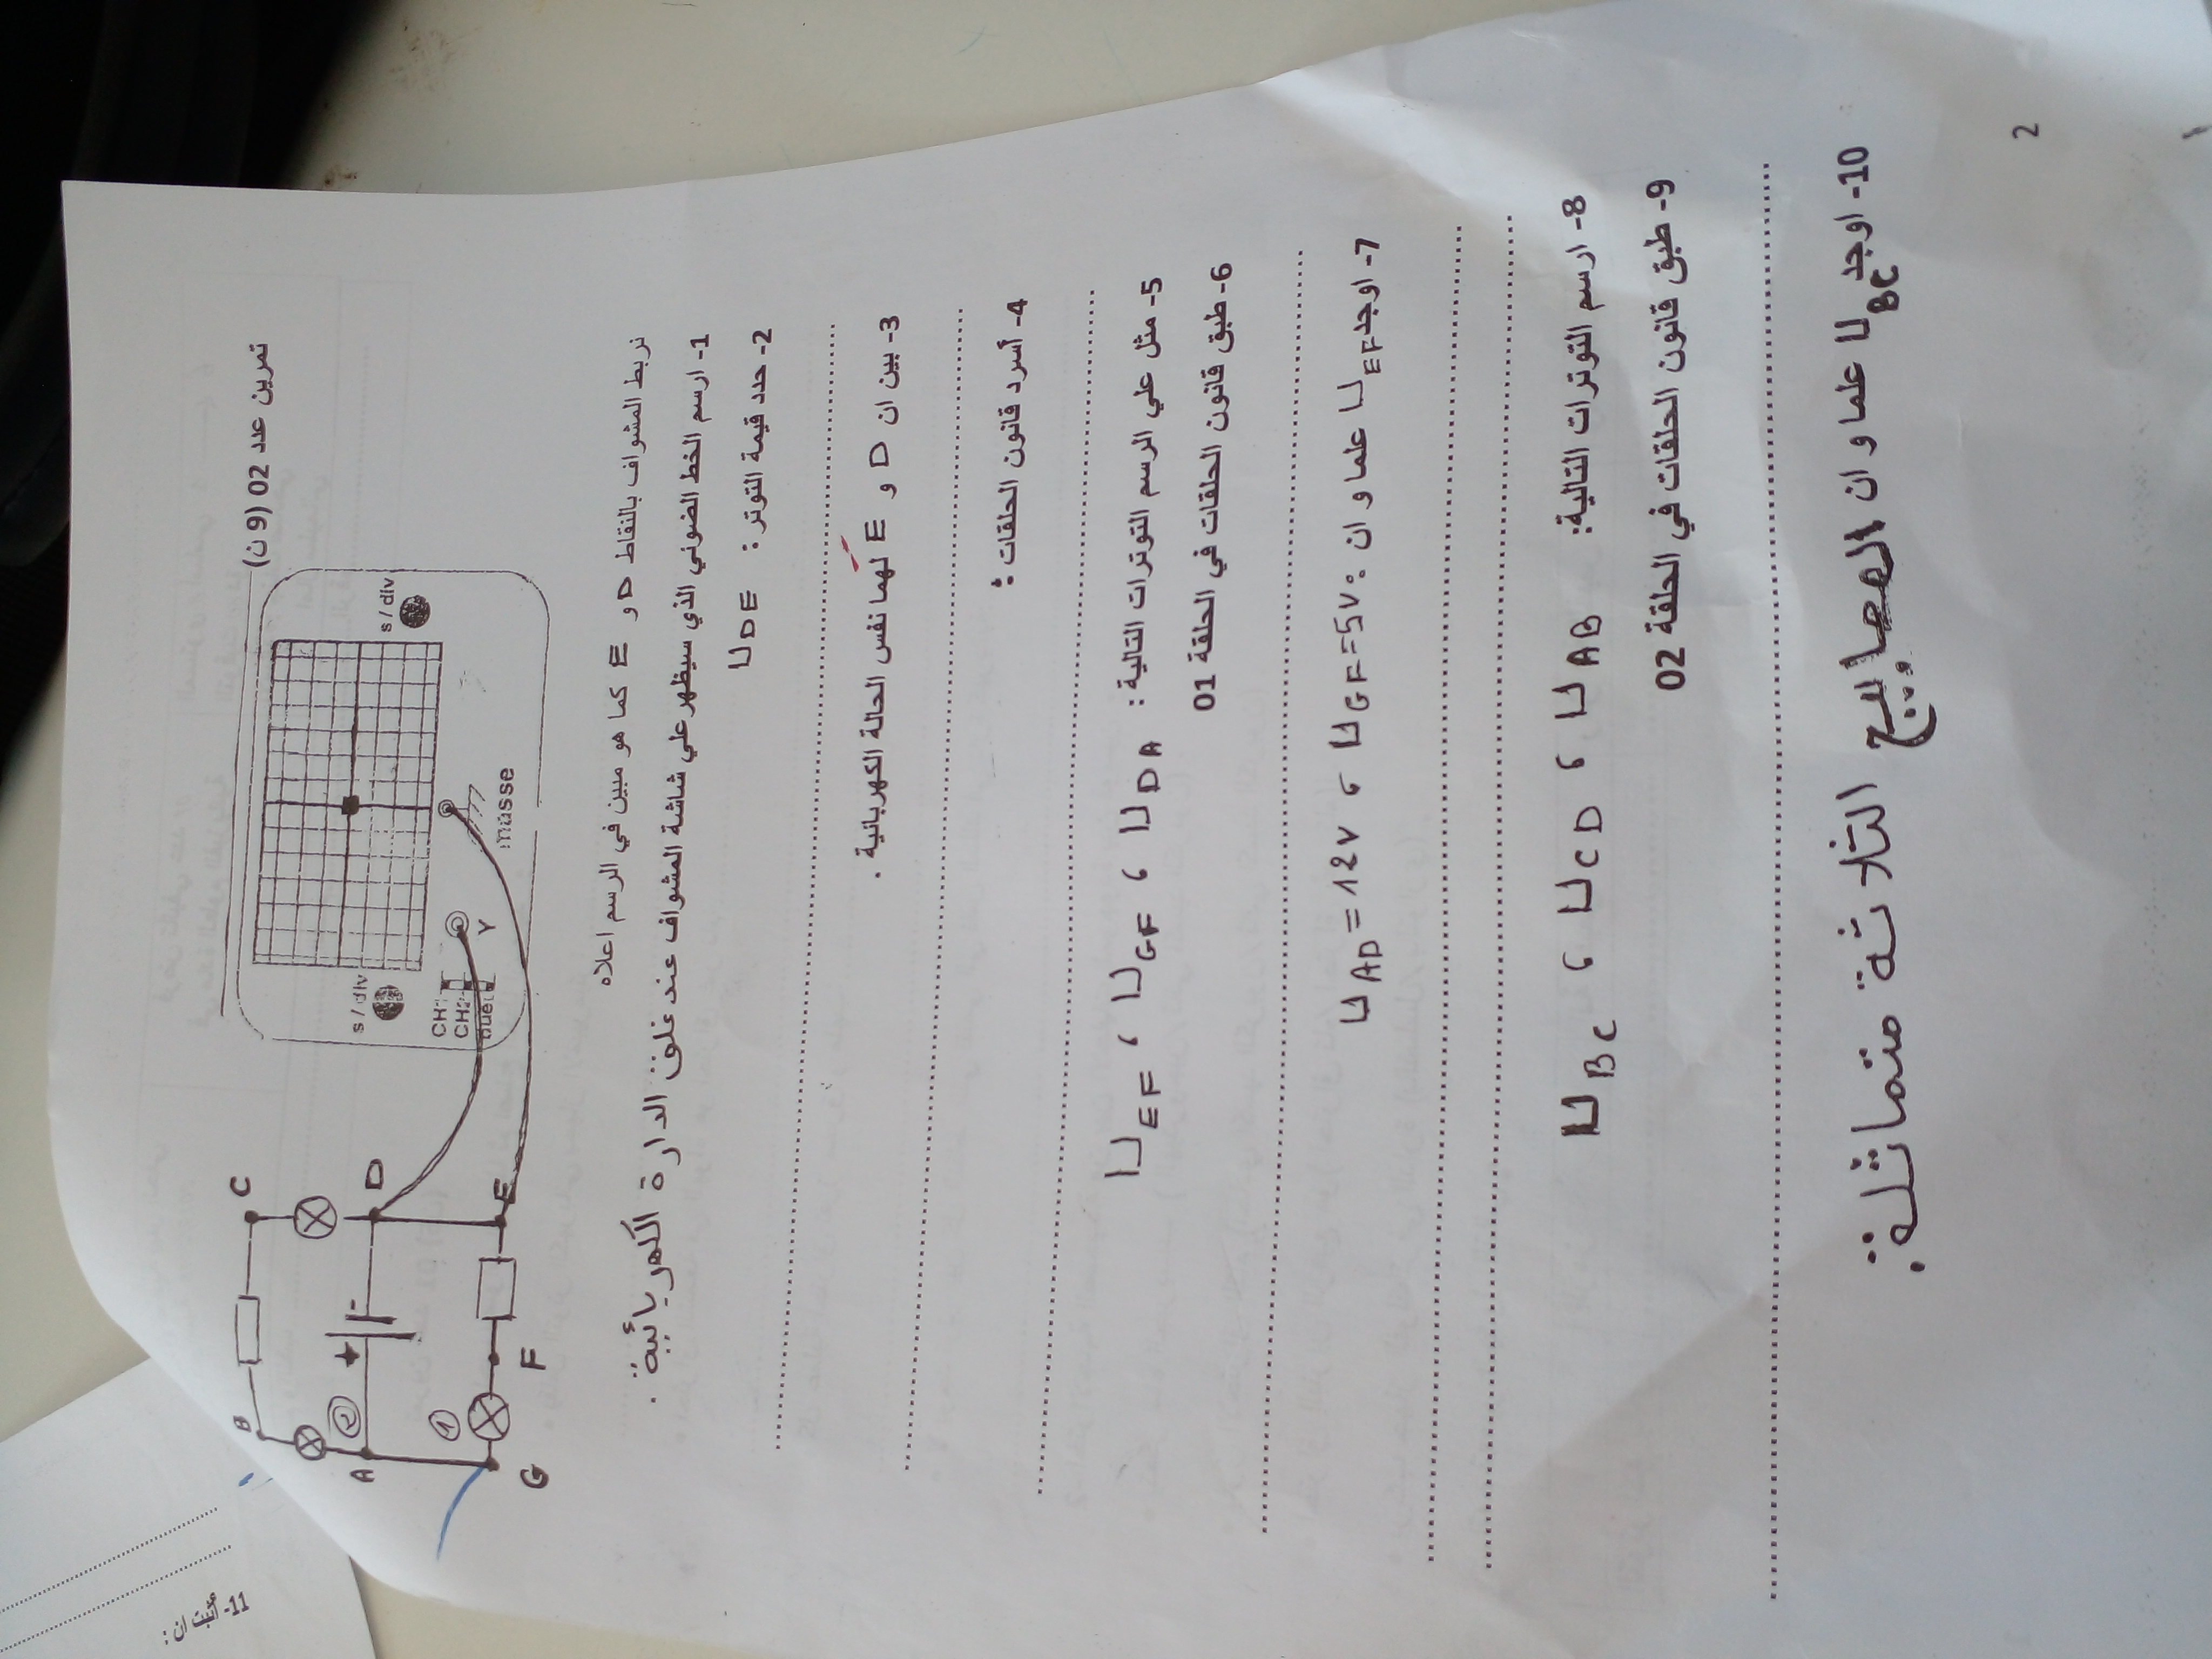 تمرين عدد 02 (9 ن)
B
C
A
D
G
F
E
+
-
②
①
s / div
s / div
CH1
CH2
duel
Y
masse
نربط المشواف بالنقاط D و E كما هو مبين في الرسم اعلاه
1- ارسم الخط الضوئي الذي سيظهر علي شاشة المشواف عند غلق الدارة الكهربائية .
2- حدد قيمة التوتر : U DE
3- بين ان D و E لهما نفس الحالة الكهربائية .
4- أسرد قانون الحلقات :
5- مثل علي الرسم التوترات التالية : U DA ، U GF ، U EF
6- طبق قانون الحلقات في الحلقة 01
7- اوجد U EF علما و ان : U GF=5V ، U AD=12V
8- ارسم التوترات التالية: U AB ، U CD ، U BC
9- طبق قانون الحلقات في الحلقة 02
10- اوجد U BC علما و ان المصابيح الثلاثة متماثلة :
2
11- مدتها ان :